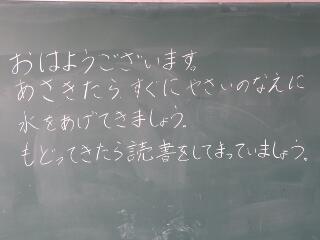 おはようございます。
あさきたらすぐにやさいのなえに
水をあげてきましょう。
もどってきたら読書をしてまっていましょう。